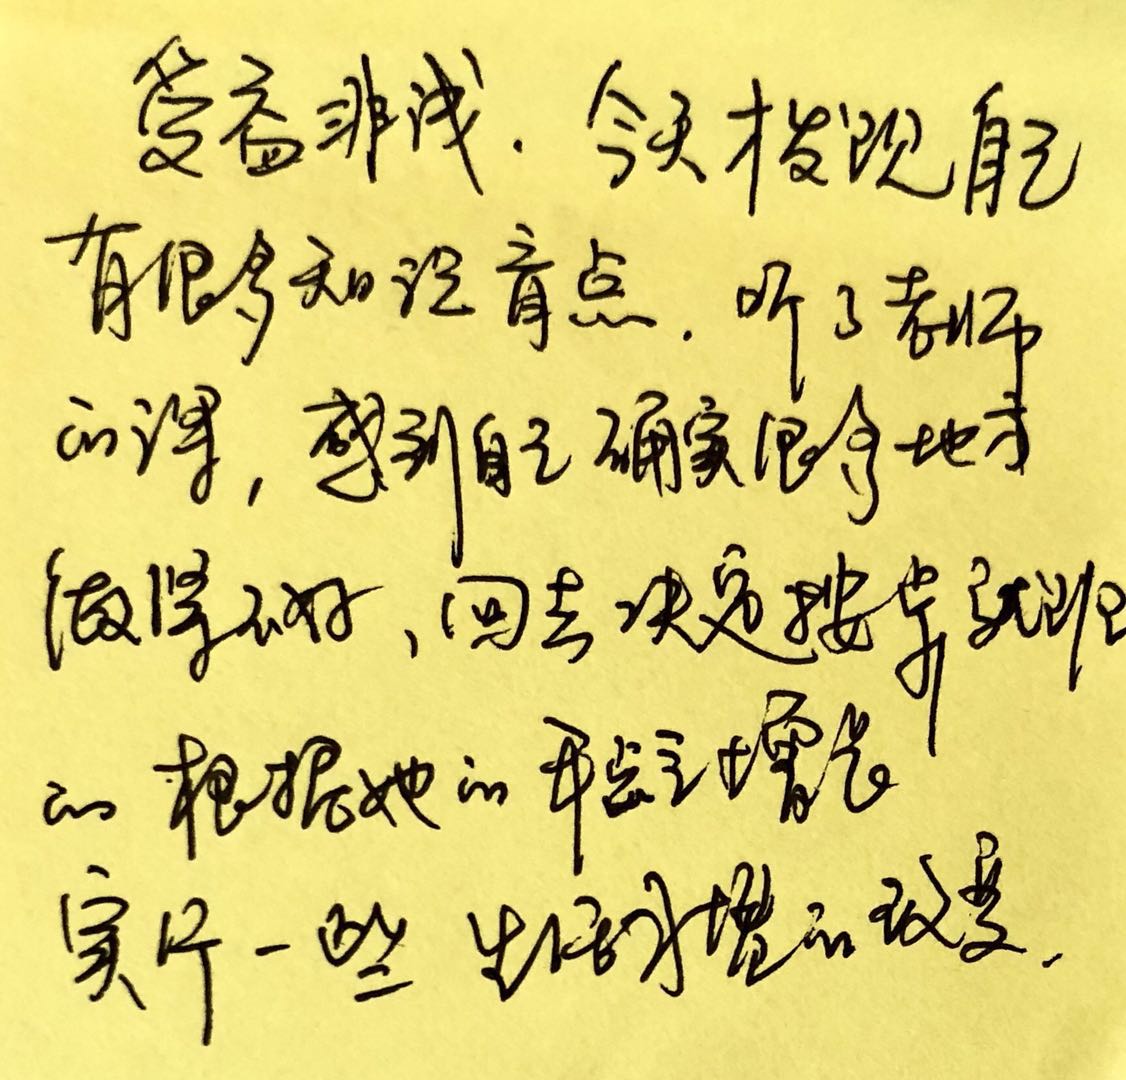 受益非浅.今天才发现自己
有很多知识盲点.听了老师
的课,感到自己确实很多地方
做得不好,回去决定按步就班
的根据她的年龄增长
实行一些生活习惯的改变.